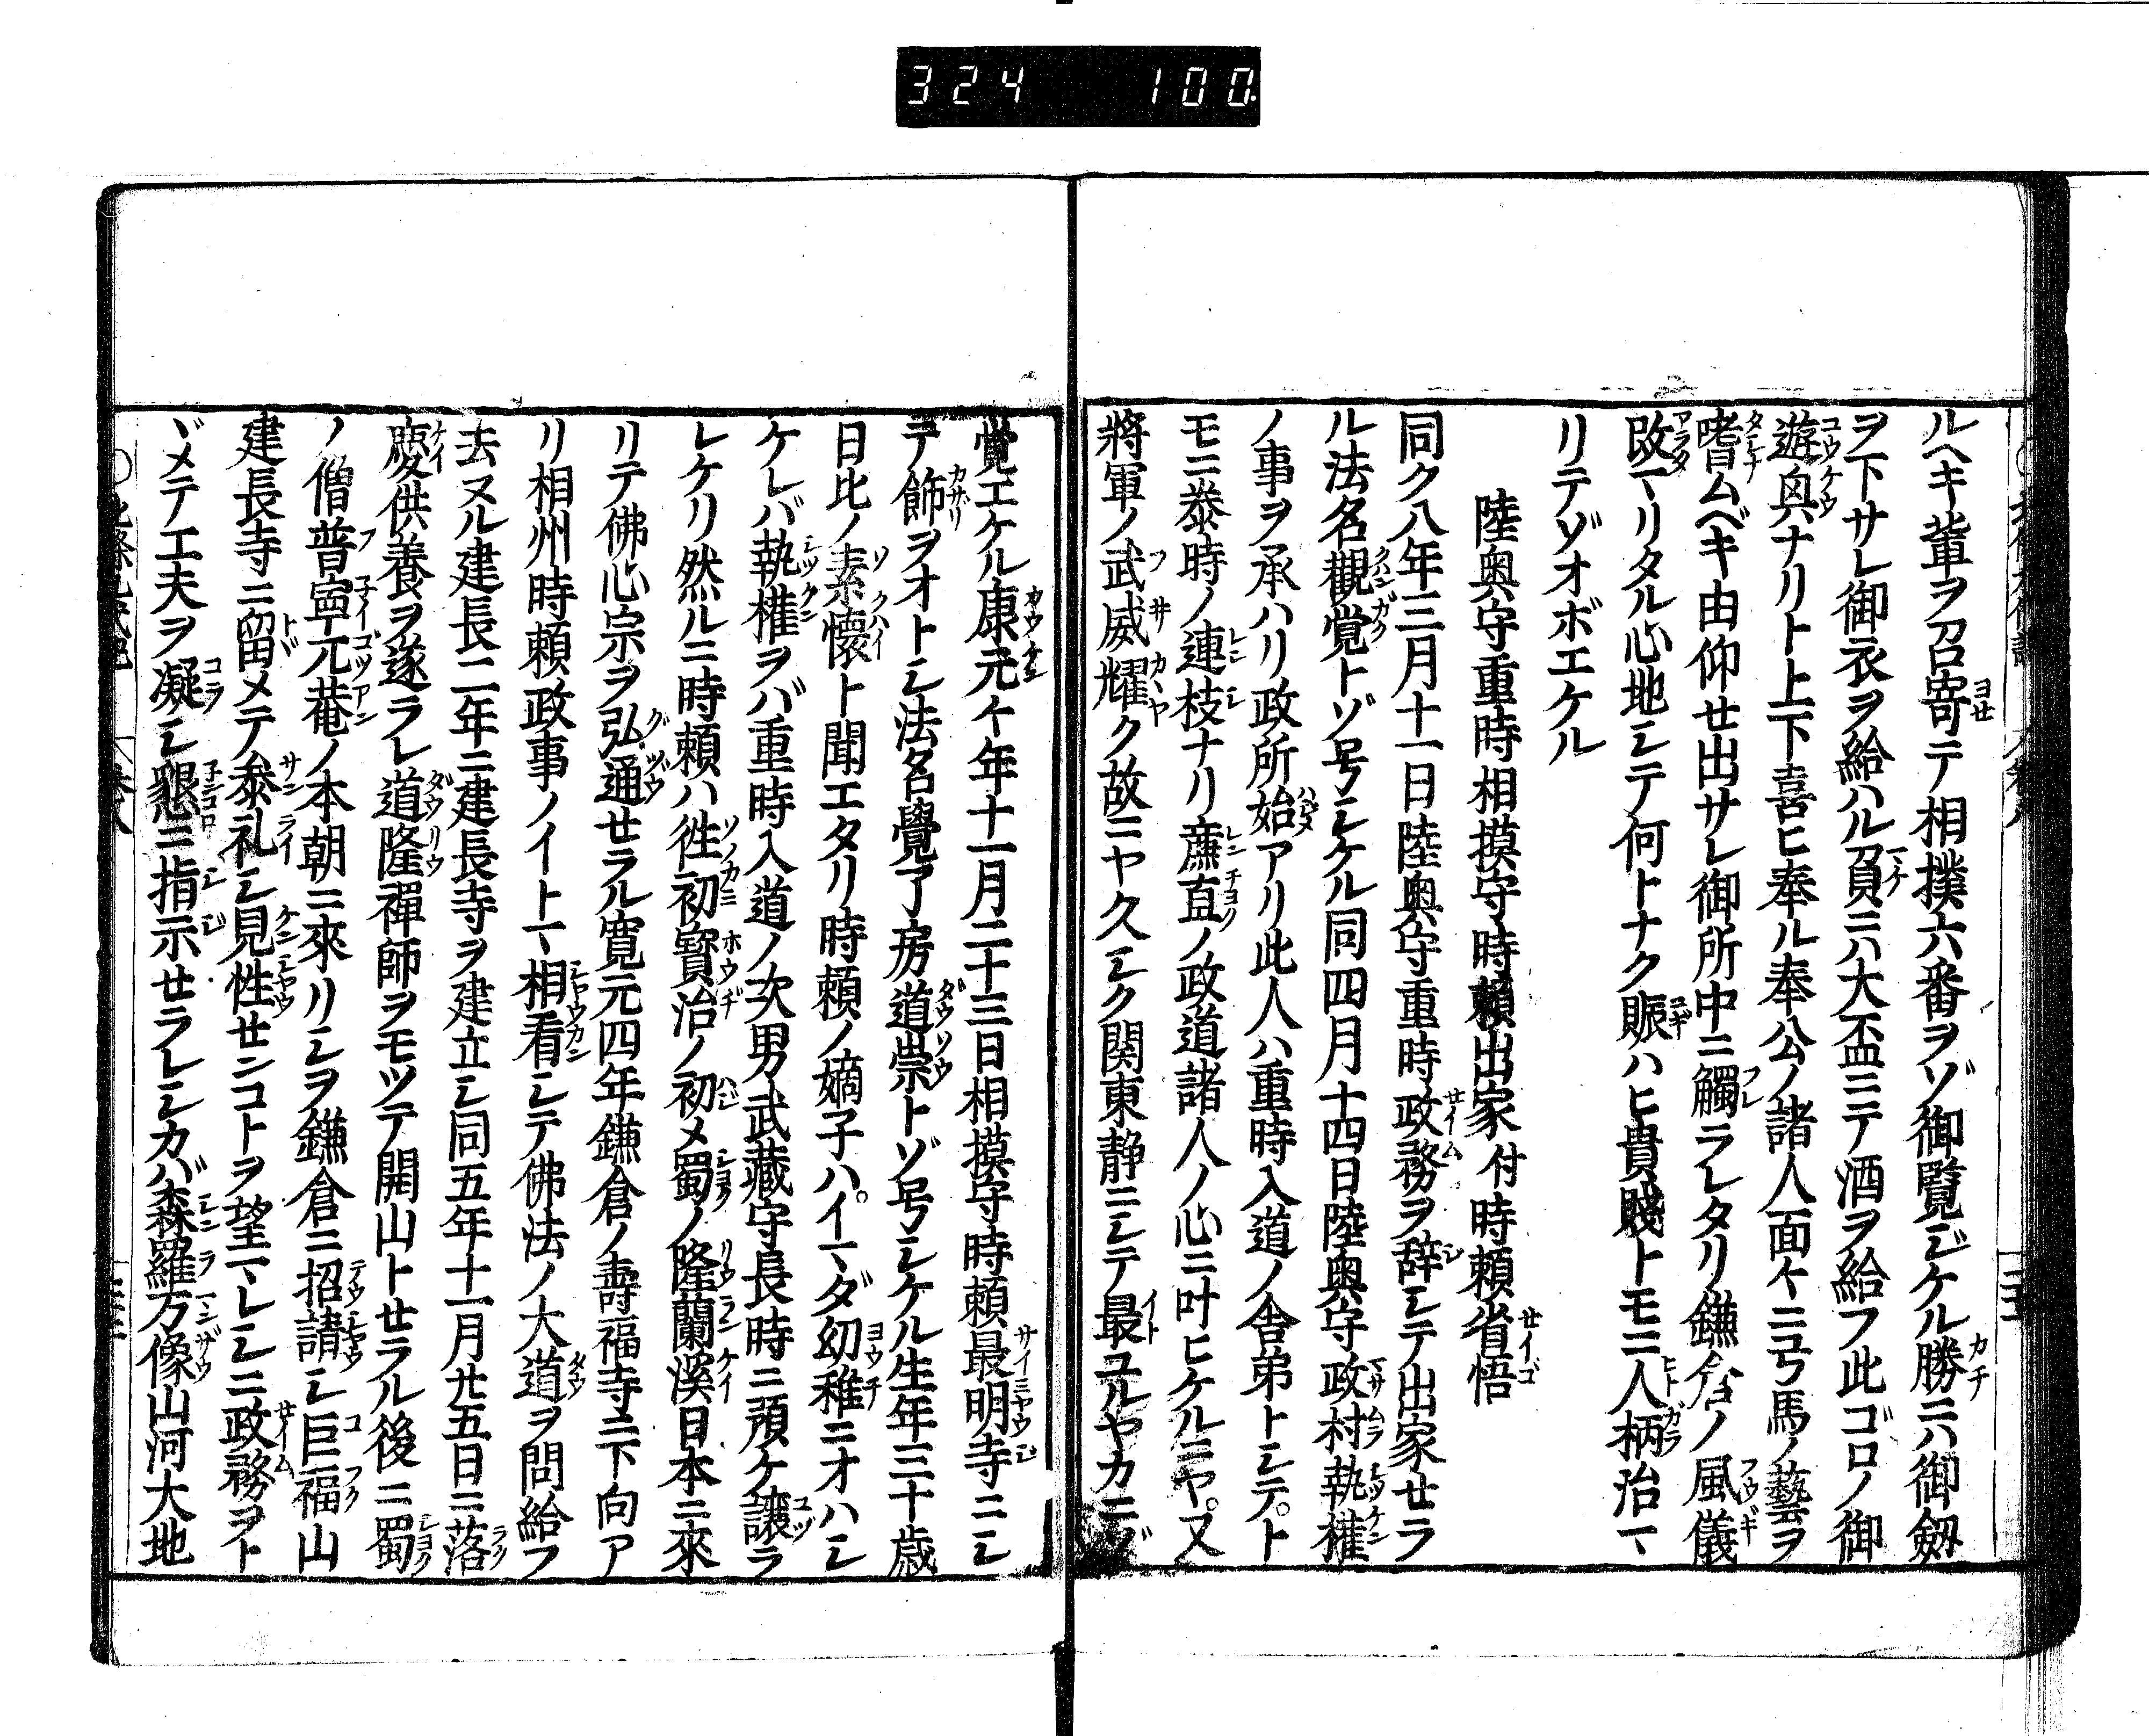 324 100.
ルヘキ輩ヲ召寄テ相撲六番ヲゾ御覧ジケル勝ニハ御劔
ヲ下サレ御衣ヲ給ハル負ニハ大盃ニテ酒ヲ給フ此ゴロノ御
遊興ナリト上下喜ヒ奉ル奉公ノ諸人面々ニ弓馬ノ藝ヲ
嗜ムベキ由仰せ出サレ御所中ニ觸ラレタリ鎌倉ノ風儀
改マリタル心地シテ何トナク賑ハヒ貴賤トモニ人柄治マ
リテゾオボエケル
陸奥守重時相摸守時頼出家付時頼省悟
同ク八年三月十一日陸奥守重時政務ヲ辞シテ出家せラ
ル法名觀覚トゾ号シケル同四月十四日陸奥守政村執權
ノ事ヲ承ハリ政所始アリ此人ハ重時入道ノ舎弟トシテト
モニ泰時ノ連枝ナリ廉直ノ政道諸人ノ心ニ叶ヒケルニヤ又
將軍ノ武威耀ク故ニヤ久シク関東静ニシテ最ユルヤカニゾ
覚エケル康元々年十一月二十三日相摸守時頼最明寺ニシ
テ飾ヲオトシ法名覺了房道崇トゾ号シケル生年三十歳
日比ノ素懐ト聞エタリ時頼ノ嫡子ハイマダ幼稚ニオハシ
ケレバ執権ヲバ重時入道ノ次男武藏守長時ニ預ケ譲ラ
レケリ然ルニ時頼ハ徃初寳治ノ初メ蜀ノ隆蘭溪日本ニ來
リテ佛心宗ヲ弘通せラル寛元四年鎌倉ノ壽福寺ニ下向ア
リ相州時頼政事ノイトマ相看シテ佛法ノ大道ヲ問給フ
去ヌル建長二年ニ建長寺ヲ建立シ同五年十一月廿五日ニ落
慶供養ヲ遂ラレ道隆禪師ヲモツテ開山トせラル後ニ蜀
ノ僧普寧兀菴ノ本朝ニ來リシヲ鎌倉ニ招請シ巨福山
建長寺ニ留メテ叅礼シ見性せンコトヲ望マレシニ政務ヲト
ヾメテ工夫ヲ凝シ懇ニ指示せラレシカバ森羅万像山河大地